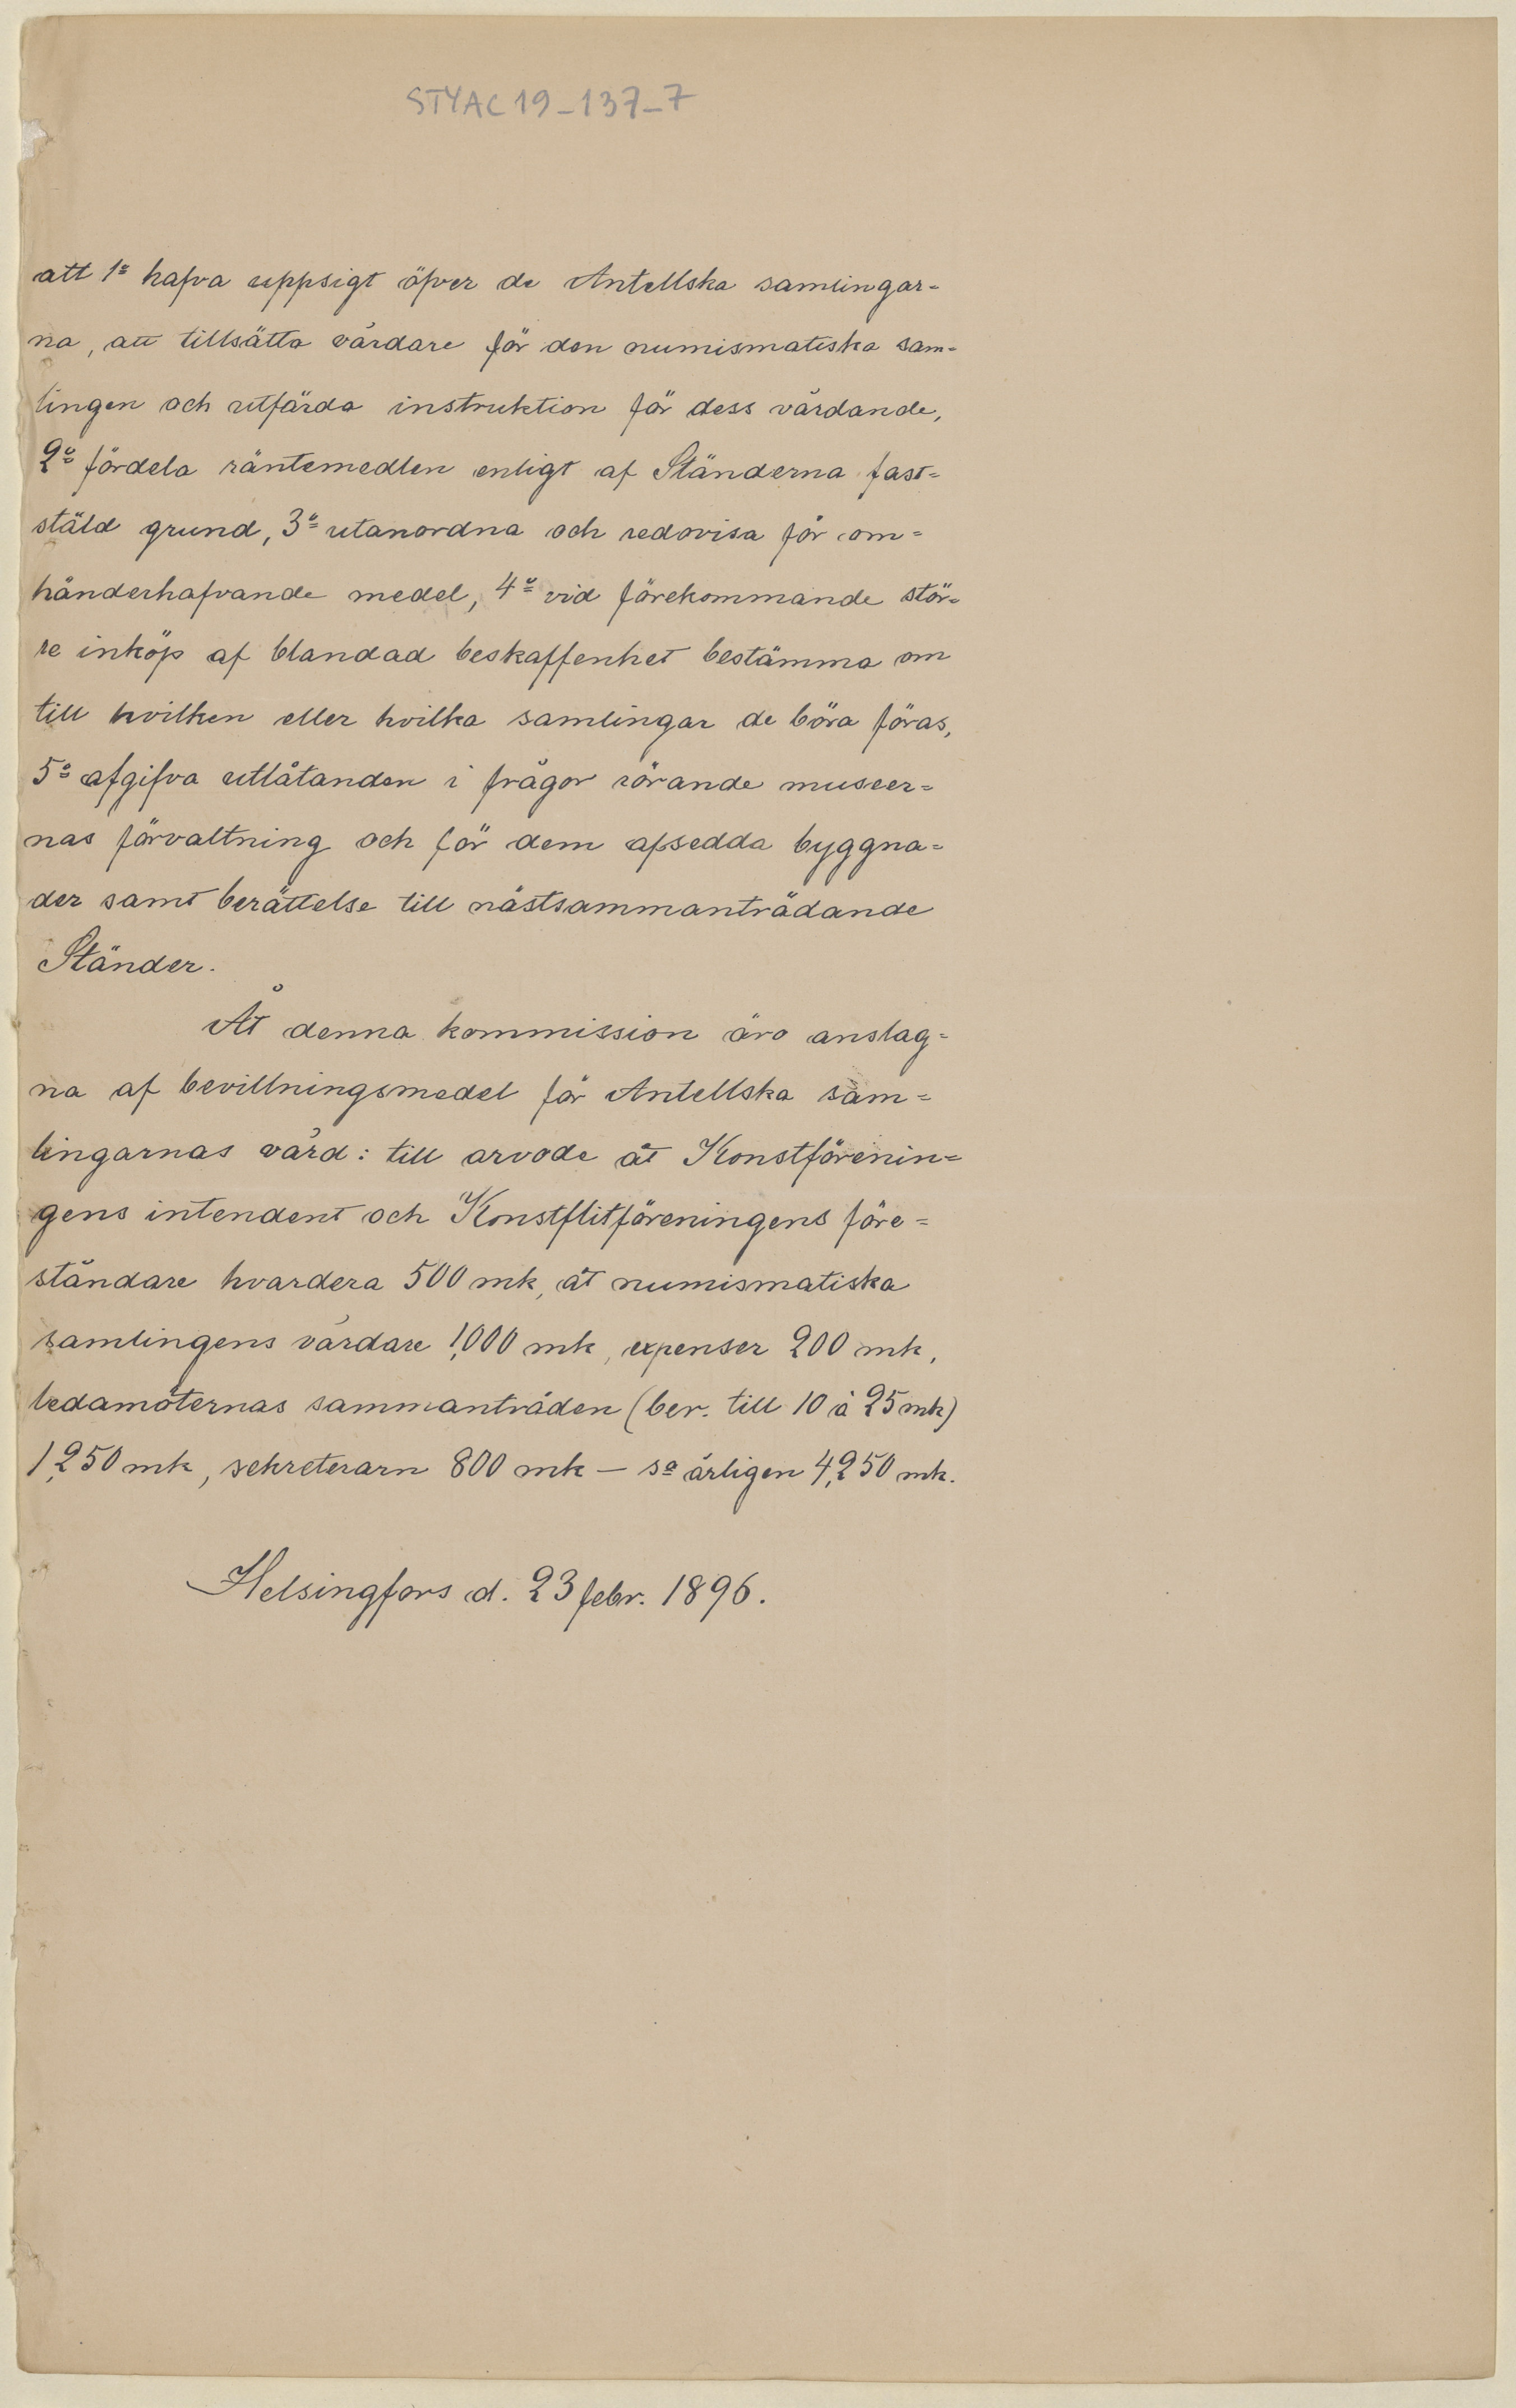 STYAC 19_137_7
att 1º hafva uppsigt öfver de Antellska samlingar=
na, att tillsätta vårdare för den numismatiska sam=
lingen och utfärda instruktion för dess vårdande,
2º fördela räntemedlen enligt af Ständerna fast=
stäld grund, 3º utanordna och redovisa för om=
händerhafvande medel, 4º vid förekommande stör=
re inköp af blandad beskaffenhet bestämma om
till hvilken eller hvilka samlingar de böra föras,
5º afgifva utlåtanden i frågor rörande museer=
nas förvaltning och för dem afsedda byggna=
der samt berättelse till nästsammanträdande
Ständer.
Åt denna kommission äro anslag=
na af bevillningsmedel för Antellska sam=
lingarnas vård: till arvode åt Konstförenin=
gens intendent och Konstflitföreningens före=
ståndare hvardera 500 mk, åt numismatiska
samlingens vårdare 1,000 mk, expenser 200 mk,
ledamöternas sammanträden (ber. till 10 à 25 mk)
1,250 mk, sekreterarn 800 mk — sa årligen 4,250 mk.
Helsingfors d. 23 febr. 1896.